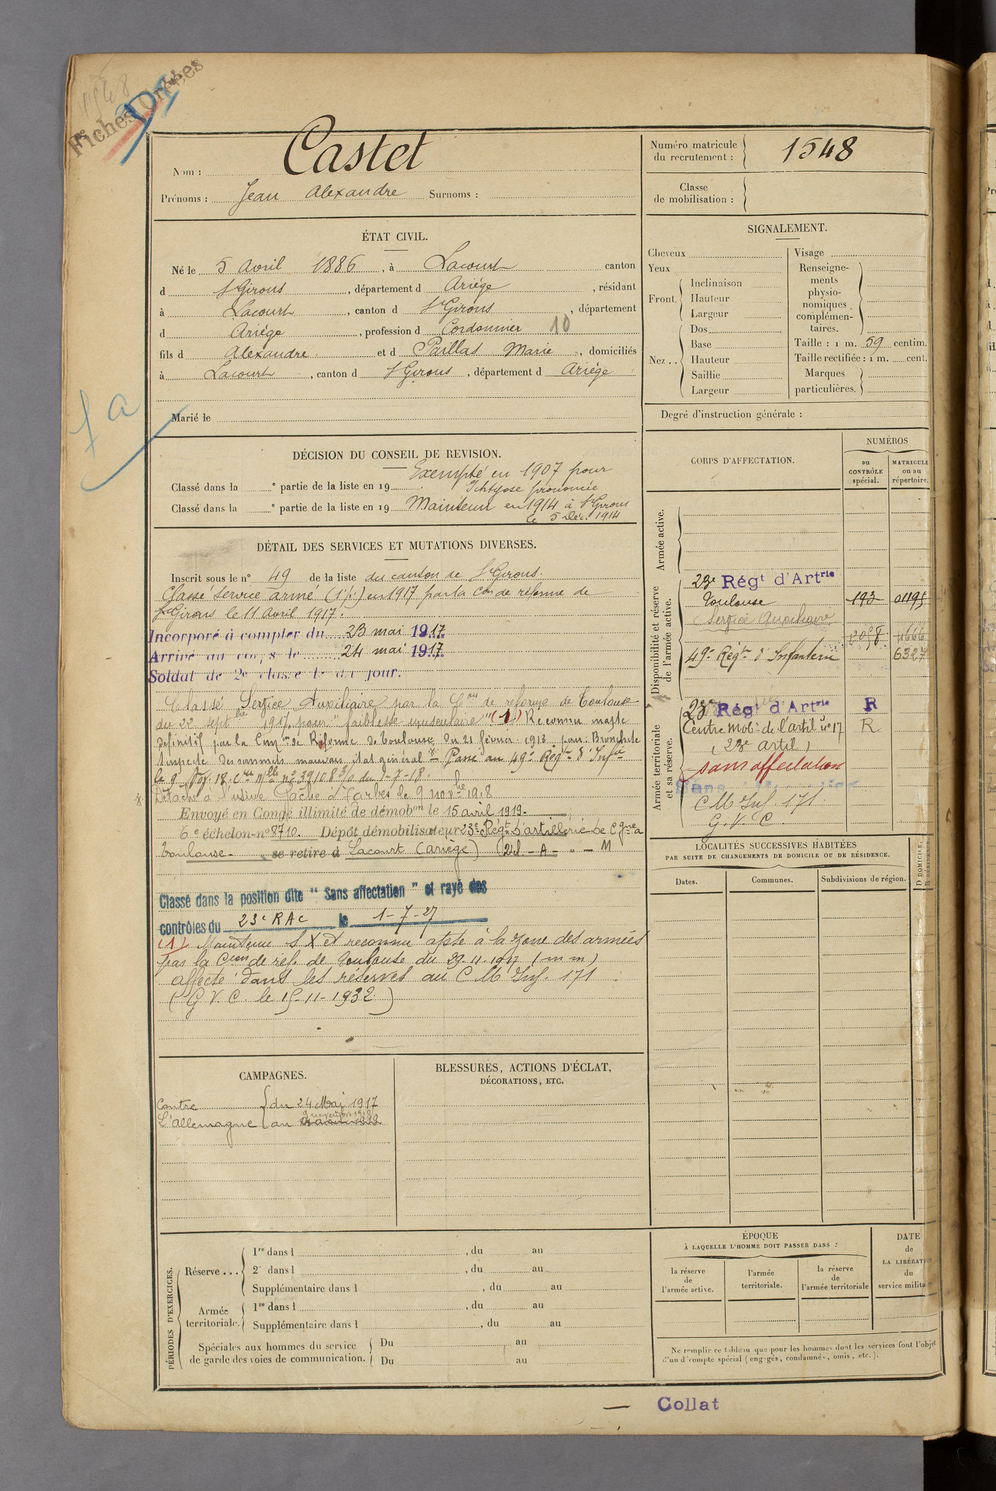 1548
Fiches Dréées
Nom : Castet
Prénoms : Jean Alexandre Surnoms :
Numéro matricule du recrutement : 1548
Classe de mobilisation :
ÉTAT CIVIL.
Né le 5 Avril 1886, à Lacourt canton
d St Girons, département d Ariége, résidant
à Lacourt, canton d St Girons, département
d Ariége, profession d Cordonnier 10
fils d Alexandre et d Paillas Marie, domiciliés
à Lacourt, canton d St Girons, département d Ariége
Marié le
SIGNALEMENT.
Cheveux
Yeux
Front.
Inclinaison
Hauteur
Largeur
Dos
Nez ..
Base
Hauteur
Saillie
Largeur
Visage
Renseigne-
ments
physio-
nomiques
complémen-
taires.
Taille : 1 m. 59 centim.
Taille rectifiée : 1 m. cent.
Marques
particulières.
Degré d'instruction générale :
DÉCISION DU CONSEIL DE REVISION.
Exempté en 1907 pour
Classé dans la e partie de la liste en 19 Ichtyose prononcée
Classé dans la e partie de la liste en 19 Maintenu en 1914 à St Girons
le 5 Déc. 1914
DÉTAIL DES SERVICES ET MUTATIONS DIVERSES.
Inscrit sous le n° 49 de la liste des canton de St Girons.
Classé Service armé (1 p.) en 1917 par la Con de réforme de
St Girons le 11 avril 1917.
Incorporé à compter du 23 mai 1917
Arrivé au corps le 24 mai 1917
Soldat de 2e classe le dit jour.
Classé Service Auxiliaire par la Con de réforme de Toulouse
du 22 septbre 1917 pour "faiblesse musculaire" (1) Reconnu inapte
définitif par la Comon de Réforme de Toulouse du 21 février 1918 pour: Bronchite
suspecte des sommets mauvais état général Passé au 49e Régt d'Infie
Détaché à l'usine Pache à Tarbes le 9 novbre 1918
Envoyé en Congé illimité de démobon le 15 avril 1919.
6e échelon - n° 8710. Dépôt démobilisateur 23e Régt d'artillerie de Cgne à
Toulouse - se retire à Lacourt (Ariège)
Classé dans la position dite "Sans affectation" et rayé des
contrôles du 23e RAC le 1-7-27
(1) Maintenu SX et reconnu apte à la zone des armées
par la Con de réf. de Toulouse du 29-11-1917 (m m)
affecté dans les réserves au C M Inf. 171
(G.V.C. le 15-11-1932)
CORPS D'AFFECTATION.
NUMÉROS
au CONTRÔLE spécial.
MATRICULE ou au répertoire.
Armée active.
Disponibilité et réserve de l'armée active.
23e Régt d'Artrie
Toulouse 193 01195
Service Auxiliaire
49e Régt d'Infanterie 6327
Armée territoriale et sa réserve.
23e Régt d'Artrie R
Centre Mob. de l'artil. n° 17 R
(23e artil)
sans affectation
C M Inf. 171
G. V. C.
LOCALITÉS SUCCESSIVES HABITÉES
PAR SUITE DE CHANGEMENTS DE DOMICILE OU DE RÉSIDENCE.
Dates. Communes. Subdivisions de région.
CAMPAGNES.
Contre du 24 Mai 1917
L'Allemagne au
BLESSURES, ACTIONS D'ÉCLAT,
DÉCORATIONS, ETC.
PÉRIODES D'EXERCICES.
Réserve ...
1re dans l , du au
2e dans l , du au
Supplémentaire dans l , du au
Armée territoriale.
1re dans l , du au
Supplémentaire dans l , du au
Spéciales aux hommes du service
de garde des voies de communication.
Du au
Du au
ÉPOQUE
À LAQUELLE L'HOMME DOIT PASSER DANS :
la réserve de l'armée active.
l'armée territoriale.
la réserve de l'armée territoriale
DATE
de
LA LIBÉRAT
du
service milita
Ne remplir ce tableau que pour les hommes dont les services font l'objet
d'un décompte spécial (engagés, condamnés, omis, etc.).
Collat